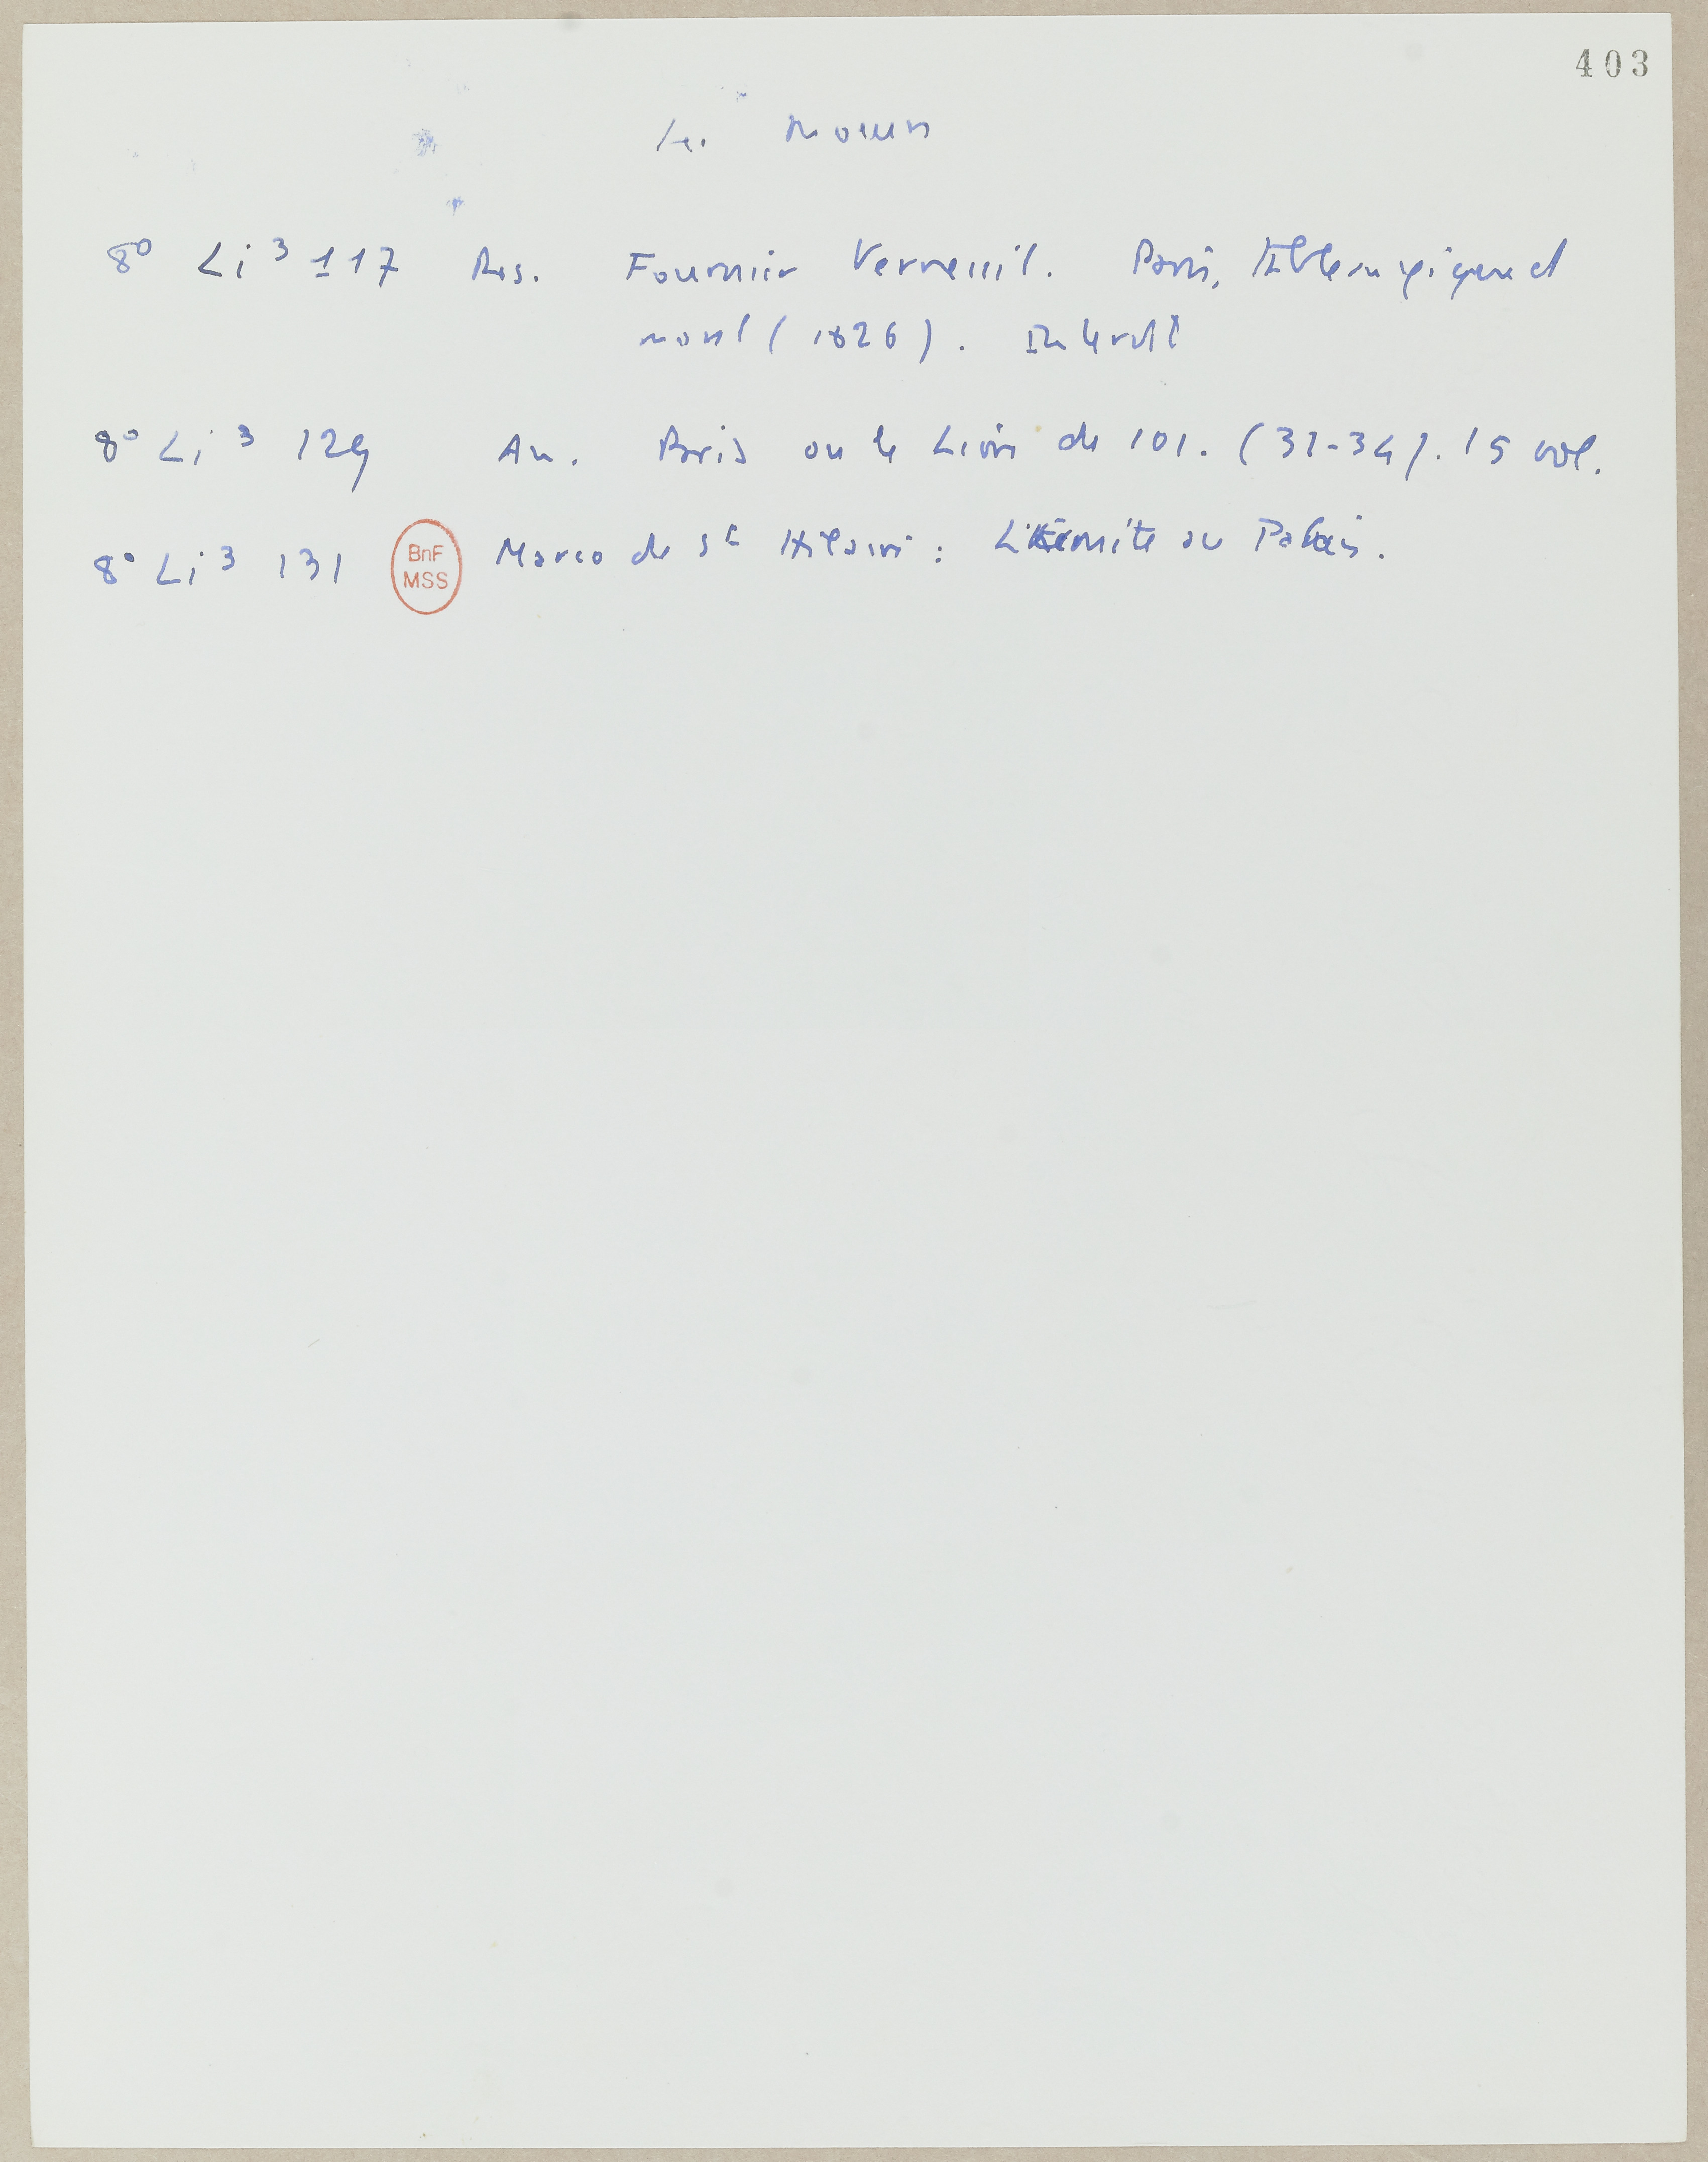 403
les moeurs
8° Li 3 117 Res. Fournier Verneuil. Paris, Tableau et
moral (1826). Interdit
8° Li 3 129 An. Paris ou le Livre des 101. (31-34). 15 vol.
8° Li 3 131 BnF MSS Marco de St Hilaire : L'Ermite au Palais.